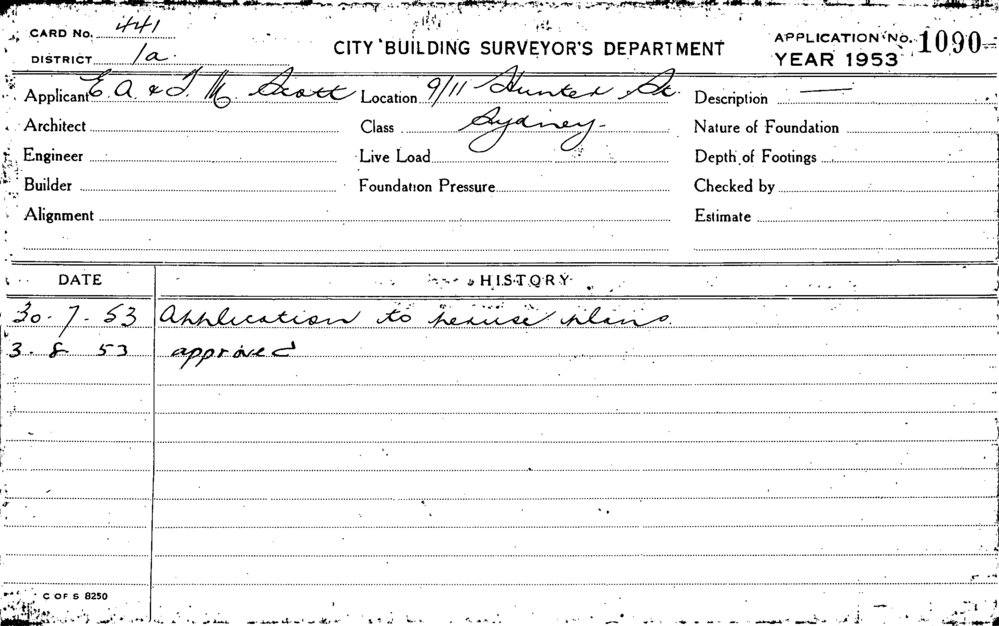 CARD No. 441
DISTRICT 1a.
CITY BUILDING SURVEYOR'S DEPARTMENT
APPLICATION No. 1090
YEAR 1953
Applicant E. A. & T. M Scott Location 9/11 Hunter St. Description —
Architect Class Sydney. Nature of Foundation
Engineer Live Load Depth of Footings
Builder Foundation Pressure Checked by
Alignment Estimate
DATE HISTORY
30.7.53 Application to peruse plans.
3.8 53 approved
C OF S 8250